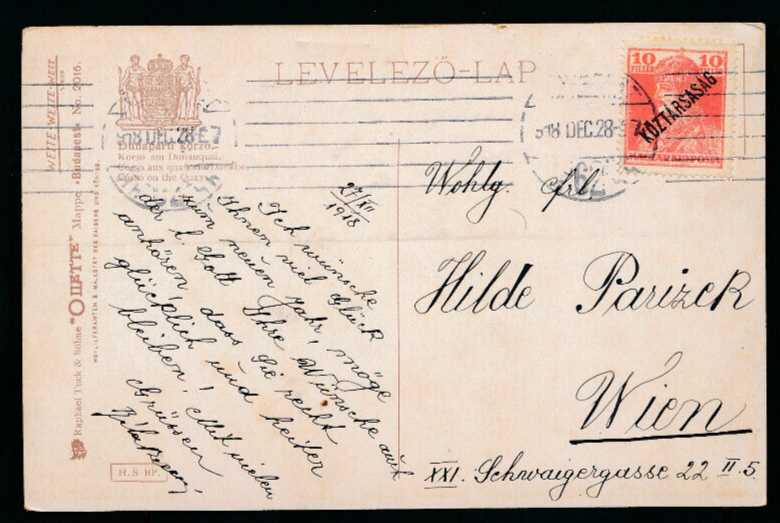 LEVELEZŐ-LAP
Dunaparti korzó.
Korzo am Donauquai.
Corso on the Quay
WEITE-WEITE-WEIT
Raphael Tuck & Söhne "OILETTE" Mappe "Budapest" No. 2016.
HOFLIEFERANTEN S. MAJESTÄT DES KAISERS UND KÖNIGS.
H. S. BP.
918 DEC. 28
918 DEC. 28
62
10 10
FILLÉR
MAGYAR KIR. POSTA
KÖZTÁRSASÁG
27/XII
1918
Ich wünsche
Ihnen viel Glück
zum neuen Jahr, möge
der l. Gott Ihre Wünsche auch
anhören, dass Sie recht
glücklich und heiter
bleiben! Mit vielen
Grüssen
Wohlg. Frl.
Hilde Parizek
Wien
XXI. Schwaigergasse 22 II. 5.